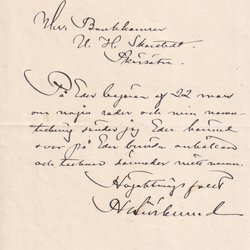 Herr Bankkamrer
N. H. Skarstedt.
På Eder begäran af 22 mars
om några rader och min namn-
teckning sänder jag Eder härmed
svar på Eder ärade anhållan
och tecknar därunder mitt namn.
Högaktningsfullt